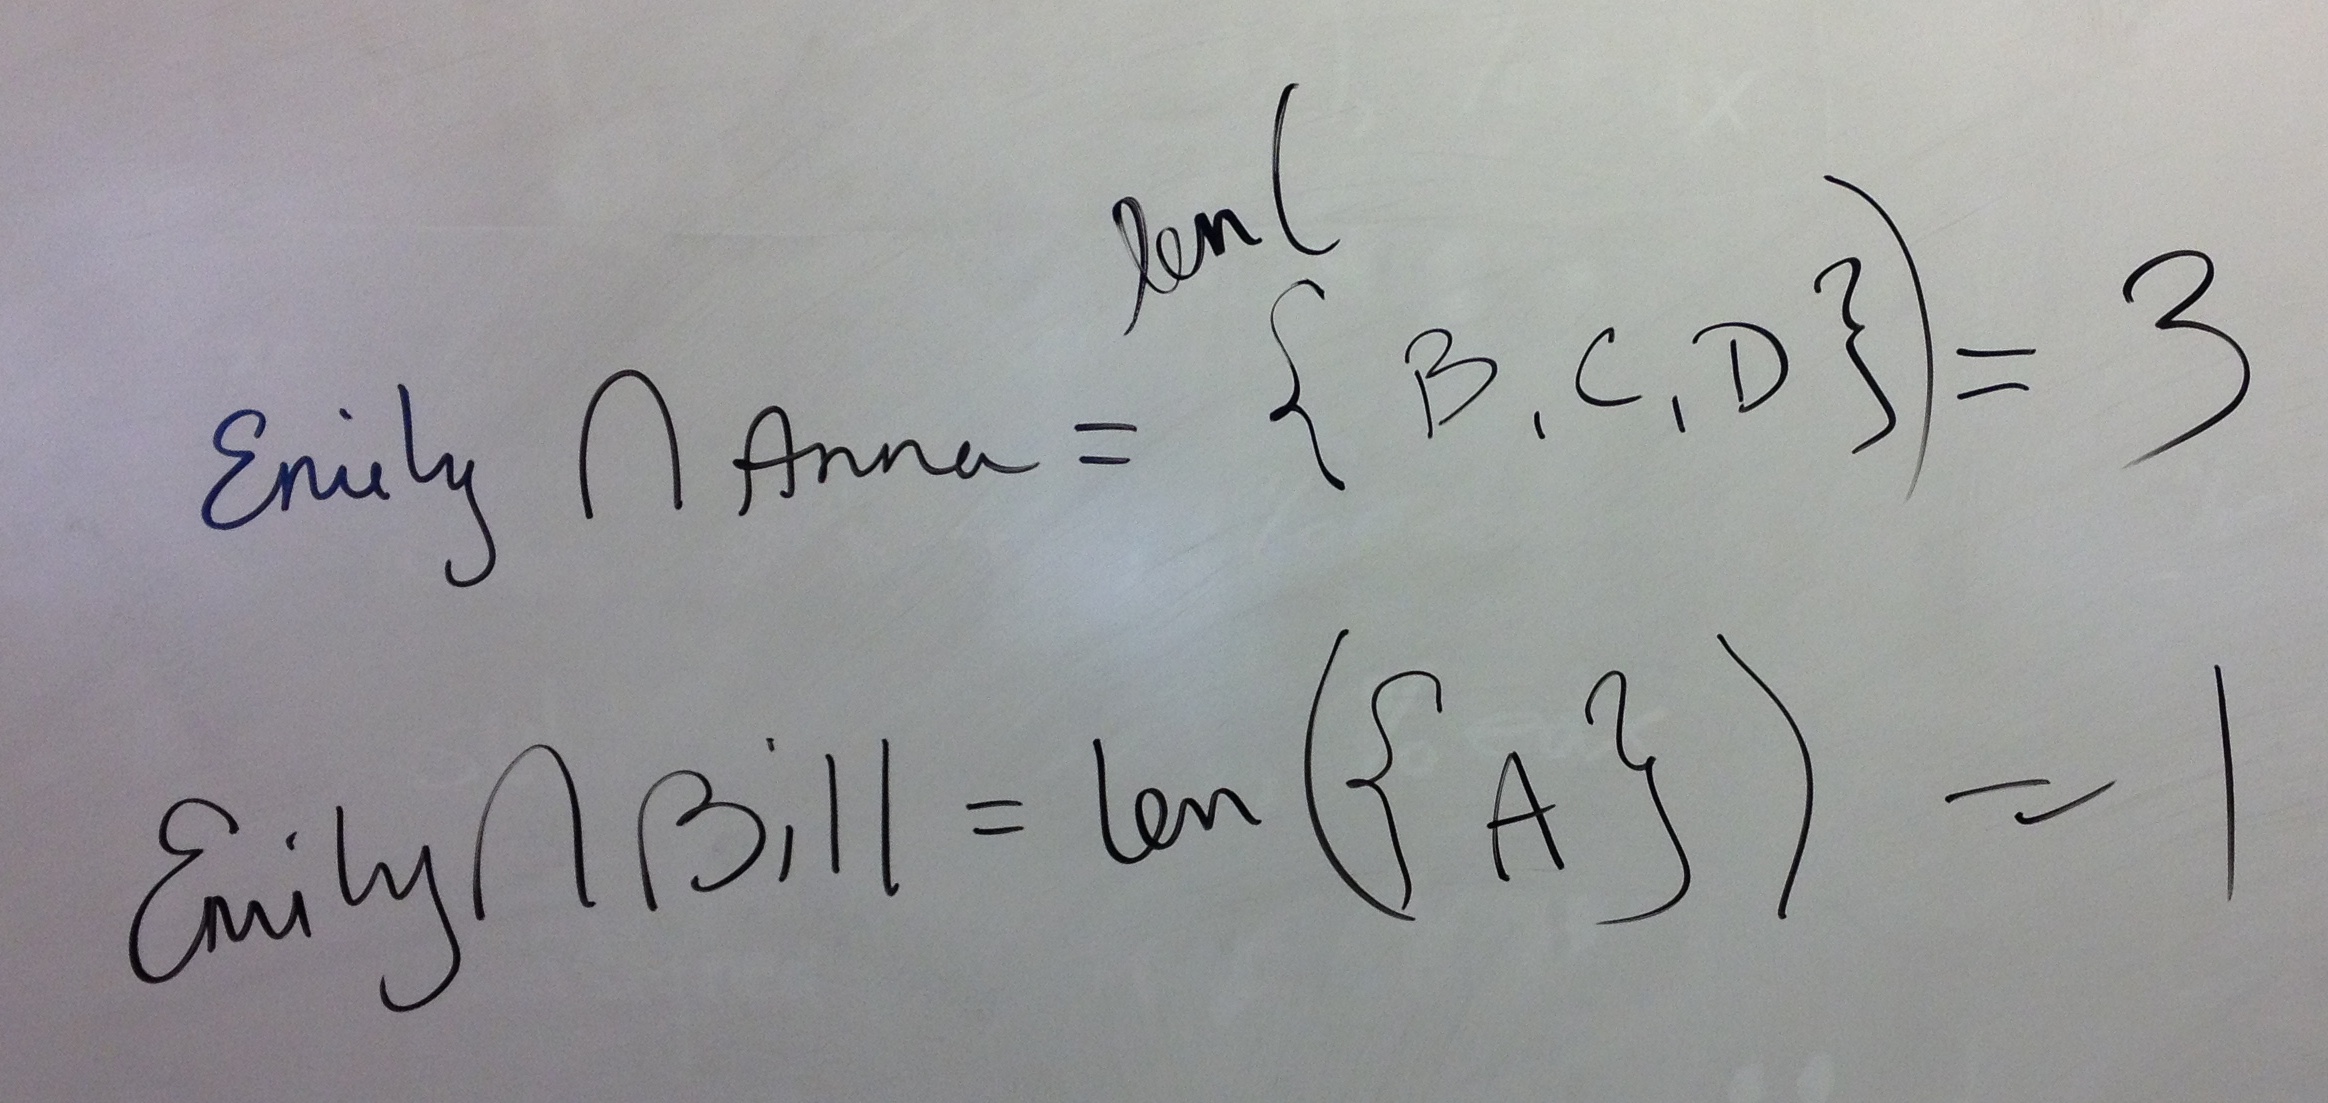 Emily ∩ Anna = len({B, C, D}) = 3
Emily ∩ Bill = len({A}) = 1